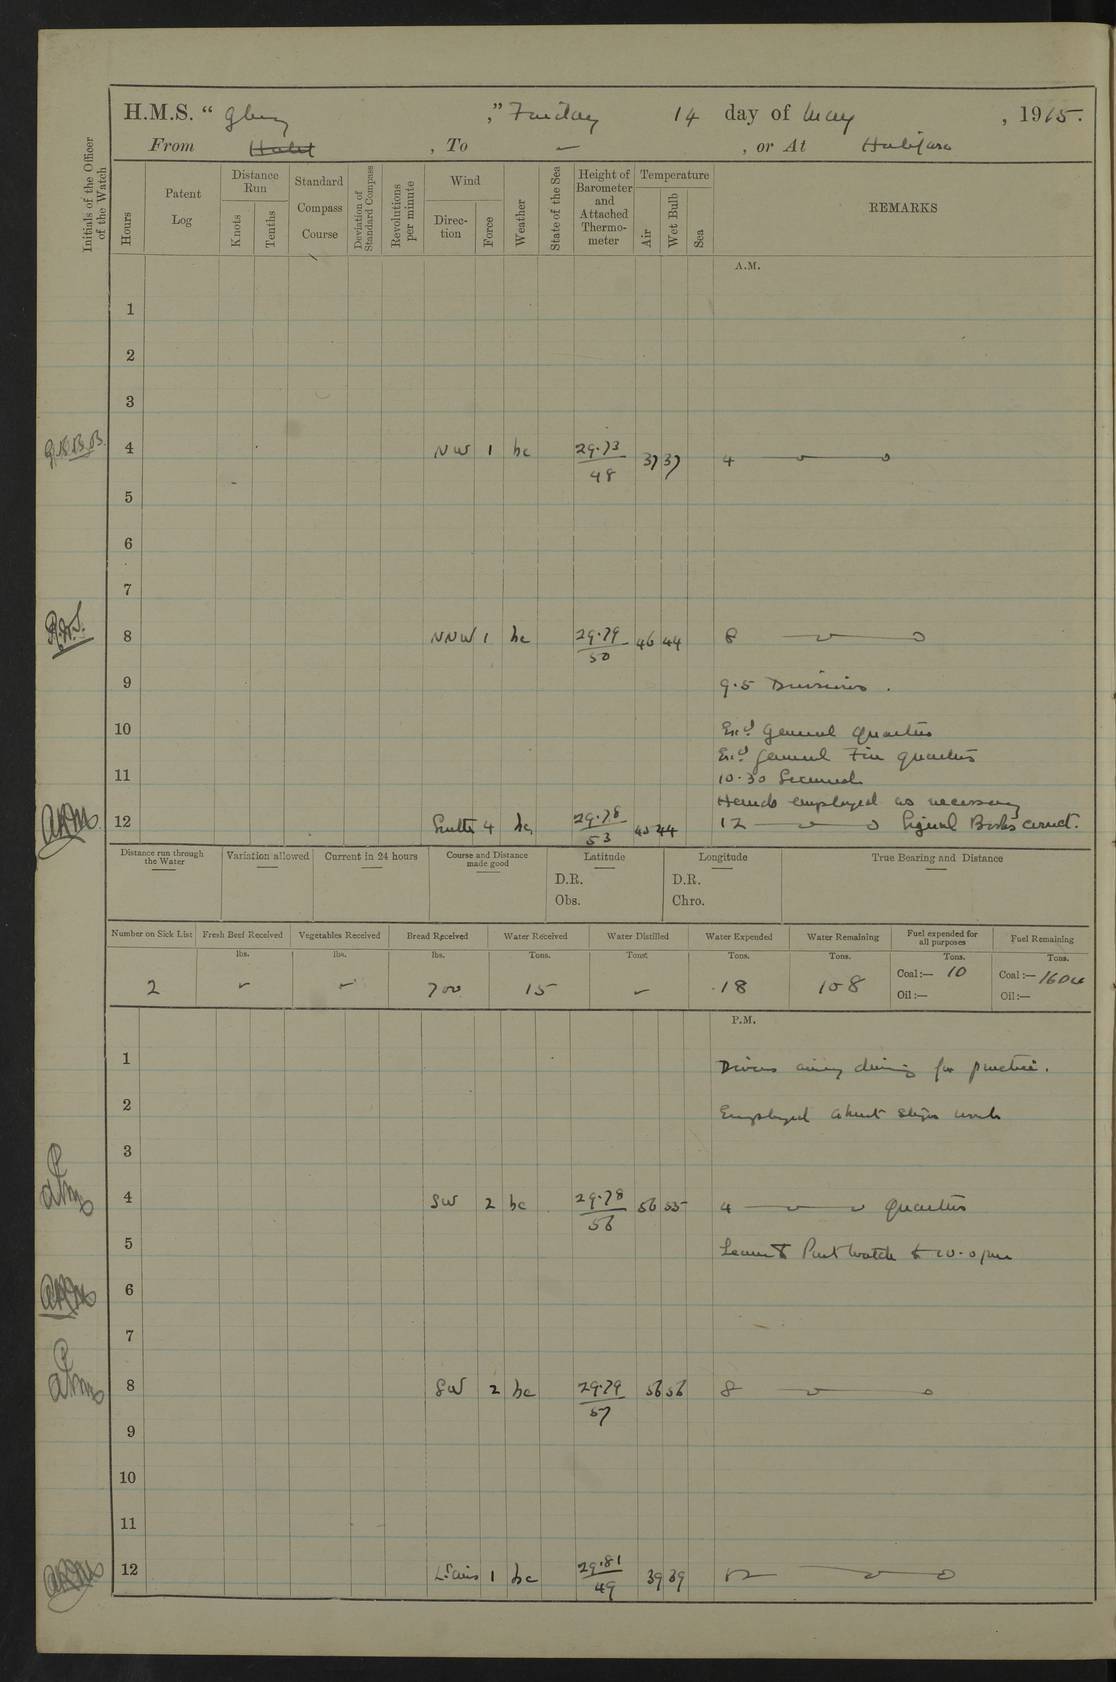 H.M.S. " Glory ," Friday 14 day of May , 1915.
From Halif , To — , or At Halifax
Initials of the Officer of the Watch
Hours
Patent Log
Distance Run
Knots
Tenths
Standard Compass Course
Deviation of Standard Compass
Revolutions per minute
Wind
Direction
Force
Weather
State of the Sea
Height of Barometer and Attached Thermometer
Temperature
Air
Wet Bulb
Sea
REMARKS
A.M.
1
2
3
4 NW 1 bc 29.73 48 37 37 4
5
6
7
8 NNW 1 bc 29.79 50 46 44 8
9 9.5 Divisions.
10 Exd General Quarters
Exd General Fire Quarters
11 10.30 Secured
Hands employed as necessary
12 4 bc 29.78 53 45 44 12 Signal Books correct.
Distance run through the Water
Variation allowed
Current in 24 hours
Course and Distance made good
Latitude
D.R.
Obs.
Longitude
D.R.
Chro.
True Bearing and Distance
Number on Sick List Fresh Beef Received Vegetables Received Bread Received Water Received Water Distilled Water Expended Water Remaining Fuel expended for all purposes Fuel Remaining
lbs. lbs. lbs. Tons. Tons. Tons. Tons. Tons. Tons.
2 – – 700 15 – 18 108 Coal:— 10 Coal:—
Oil:— Oil:—
P.M.
1 Divers diving for practice.
2 Employed about ships work
3
4 SW 2 bc 29.78 56 56 55 4 Quarters
5 Leave to Part Watch to 10.0 pm
6
7
8 SW 2 bc 29.79 57 56 56 8
9
10
11
12 Lt airs 1 bc 29.81 49 39 39 12